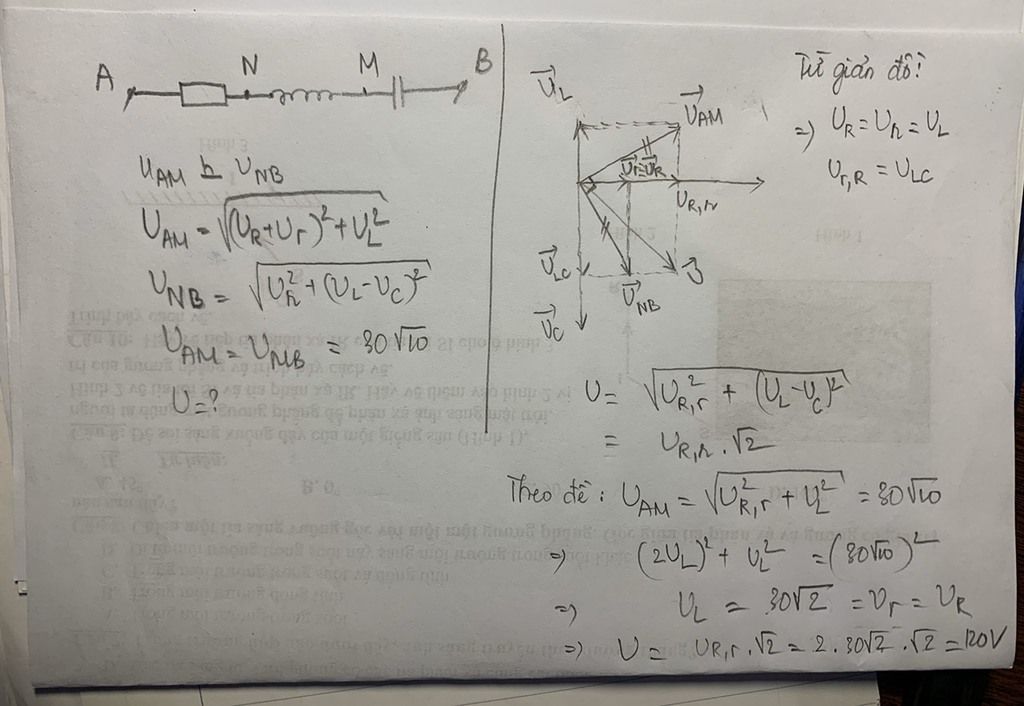 A N M B
U_AM ⊥ U_NB
U_AM = √((U_R+U_r)²+U_L²)
U_NB = √(U_r²+(U_L-U_C)²)
U_AM = U_NB = 30√10
U=?
U_L
U_AM
U_r≡U_R
U_R,r
U_LC
U_C
U_NB
U
Từ giản đồ:
=> U_R = U_r = U_L
U_r,R = U_LC
U = √(U_R,r² + (U_L-U_C)²)
= U_R,r . √2
Theo đề : U_AM = √(U_R,r² + U_L²) = 30√10
=> (2U_L)² + U_L² = (30√10)²
=> U_L = 30√2 = U_r = U_R
=> U = U_R,r . √2 = 2 . 30√2 . √2 = 120V